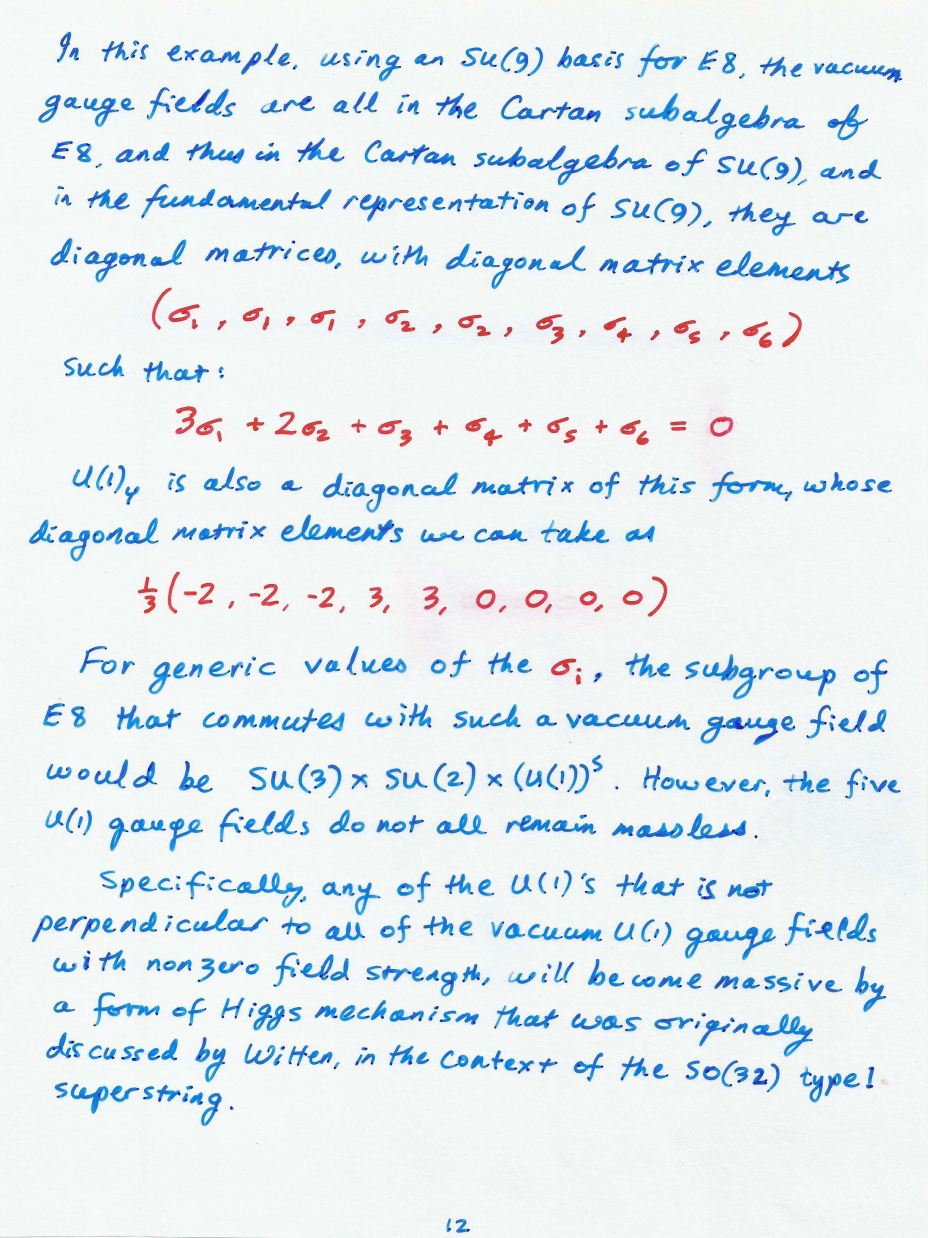 In this example, using an SU(9) basis for E8, the vacuum
gauge fields are all in the Cartan subalgebra of
E8, and thus in the Cartan subalgebra of SU(9), and
in the fundamental representation of SU(9), they are
diagonal matrices, with diagonal matrix elements
(σ₁, σ₁, σ₁, σ₂, σ₂, σ₃, σ₄, σ₅, σ₆)
such that:
3σ₁ + 2σ₂ + σ₃ + σ₄ + σ₅ + σ₆ = 0
U(1)y is also a diagonal matrix of this form, whose
diagonal matrix elements we can take as
⅓(-2, -2, -2, 3, 3, 0, 0, 0, 0)
For generic values of the σᵢ, the subgroup of
E8 that commutes with such a vacuum gauge field
would be SU(3) × SU(2) × (U(1))⁵. However, the five
U(1) gauge fields do not all remain massless.
Specifically, any of the U(1)'s that is not
perpendicular to all of the vacuum U(1) gauge fields
with nonzero field strength, will become massive by
a form of Higgs mechanism that was originally
discussed by Witten, in the context of the SO(32) type I
superstring.
12